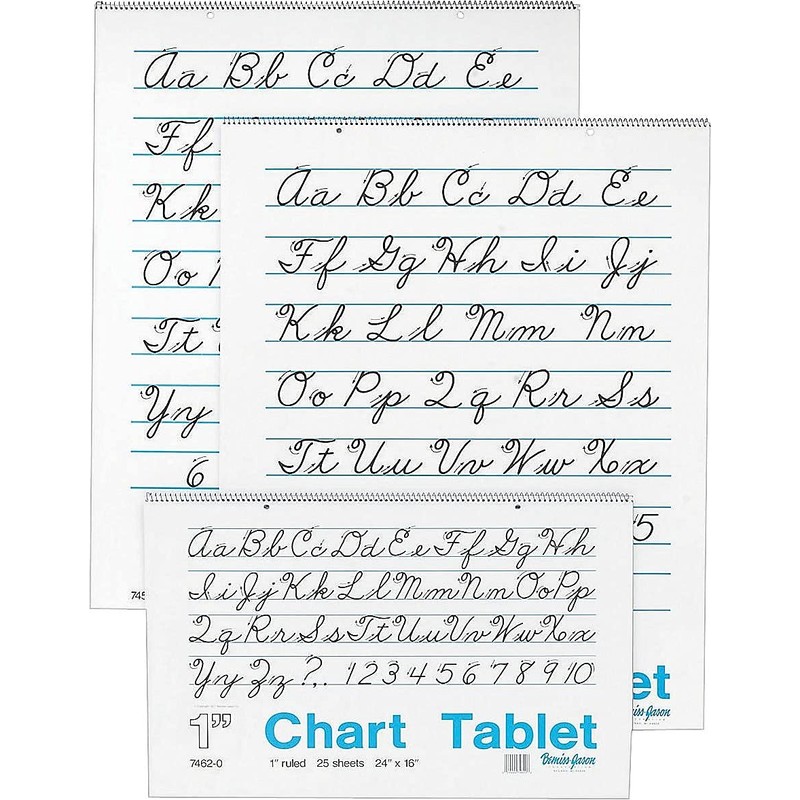 Aa Bb Cc Dd Ee
Ff
Kk
Oo
Tt
Yy
6
745
Aa Bb Cc Dd Ee
Ff Gg Hh Ii Jj
Kk Ll Mm Nn
Oo Pp Qq Rr Ss
Tt Uu Vv Ww Xx
5
et
Aa Bb Cc Dd Ee Ff Gg Hh
Ii Jj Kk Ll Mm Nn Oo Pp
Qq Rr Ss Tt Uu Vv Ww Xx
Yy Zz ?,. 1 2 3 4 5 6 7 8 9 10
1” Chart Tablet
7462-0 1" ruled 25 sheets 24" x 16" Bemiss-Jason